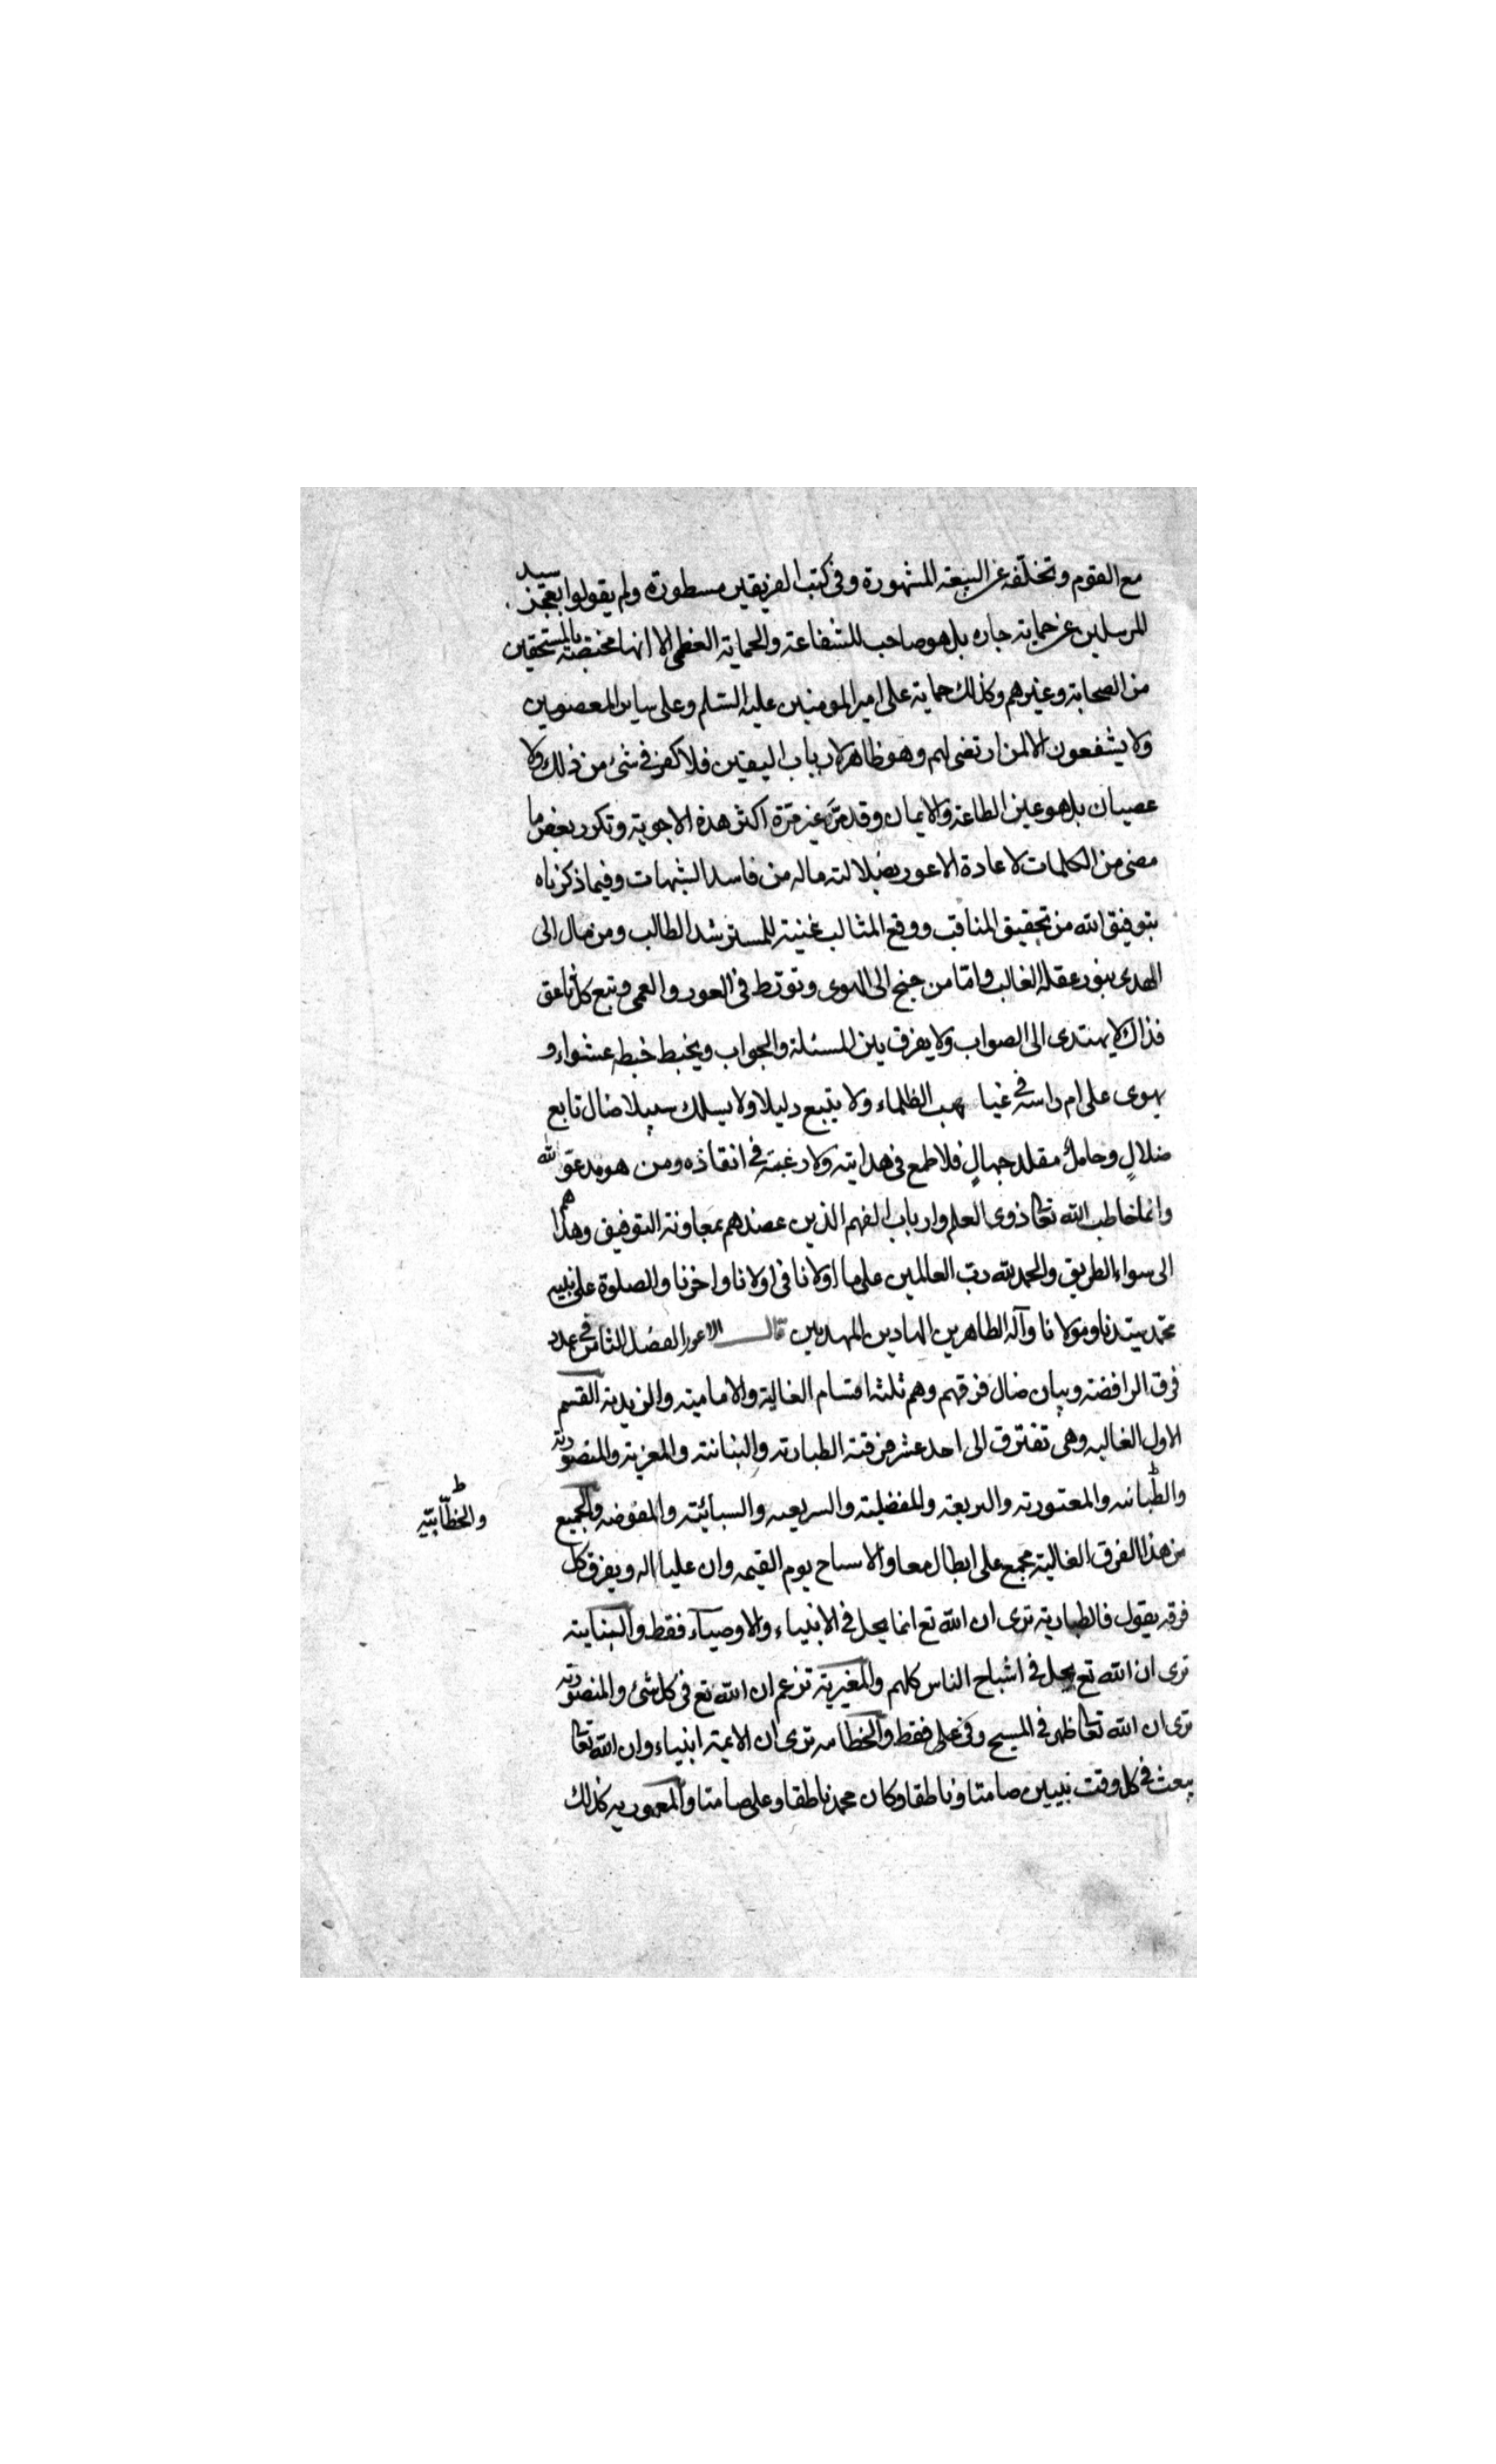 مع القوم وتخلّفه عن البيعة المشهورة وفى كتب الفريقين مسطورة ولم يقولوا بعجز سيد
المرسلين عن حماية جاره بل هو صاحب الشفاعة والحماية العظمى الا انها مختصة بالمستحقين
من الصحابة وغيرهم وكذلك حماية على امير المومنين عليه السّلم وعلى ساير المعصومين
ولا يشفعون الا لمن ارتضى لهم وهو ظاهر لارباب اليقين فلا كفر فى شئ من ذلك ولا
عصيان بل هو عين الطاعة والايمان وقد مرّ غير مرّة اكثر هذه الاجوبة وتكرر بعض ما
مضى من الكلمات لاعادة الاعور بضلالته ماله من فاسد الشبهات وفيما ذكرناه
بتوفيق الله من تحقيق المناقب ووقع المثالب غنية للمسترشد الطالب ومن مال الى
الهدى بنور عقله الغالب وامّا من جنح الى الهوى وتورّط فى العور والعمى وتبع كل ناعق
فذاك لا يهتدى الى الصواب ولا يفرق بين المسئلة والجواب ويخبط خبط عشواء و
يهوى على ام راسه فى غياهب الظلماء ولا يتبع دليلا ولا يسلك سبيلا ضال تابع
ضلالٍ وحامل مقلد جهالٍ فلا طمع فى هدايته ولا رغبة فى انقاذه ومن هو مدعو لله
وانما خاطب الله تعالى ذوى العلم وارباب الفهم الذين عضدهم بمعاونة التوفيق وهداهم
الى سواء الطريق والحمد لله ربّ العالمين على ما اولانا فى اولانا واخرنا والصلوة على نبيه
محمّد سيّدنا ومولانا وآله الطاهرين الهادين المهديين قال الاعور الفصل الثامن فى عدد
فرق الرافضة وبيان ضال فرقهم وهم ثلثة اقسام الغالية والامامية والزيدية القسم
الاول الغاليه وهى تفترق الى احد عشر فرقة الطيارية والبنانية والمغرية والمنصورية
والطبانيه والمعتورية والبريعة والمفضلية والسريعيه والسبائية والمفوضه والجميع
والخطّابيّة ط
من هذا الفرق الغالية مجمع على ابطال معاد الاسباح يوم القيمه وان عليا اله ويفرق كل
فرقه بقول فالطيارية ترى ان الله تع انما يحل فى الانبياء والاوصياء فقط والبنانية
ترى ان الله تع يحل فى اشباح الناس كلهم والمغيرية تزعم ان الله تع فى كل شئ والمنصورية
ترى ان الله تعالى ظهر فى المسيح وفى على فقط والخطاميه ترى ان الائمة انبياء وان الله تعالى
يبعث فى كل وقت نبيين صامتا وناطقا وكان محمد ناطقا وعلى صامتا والمعمورية كذلك